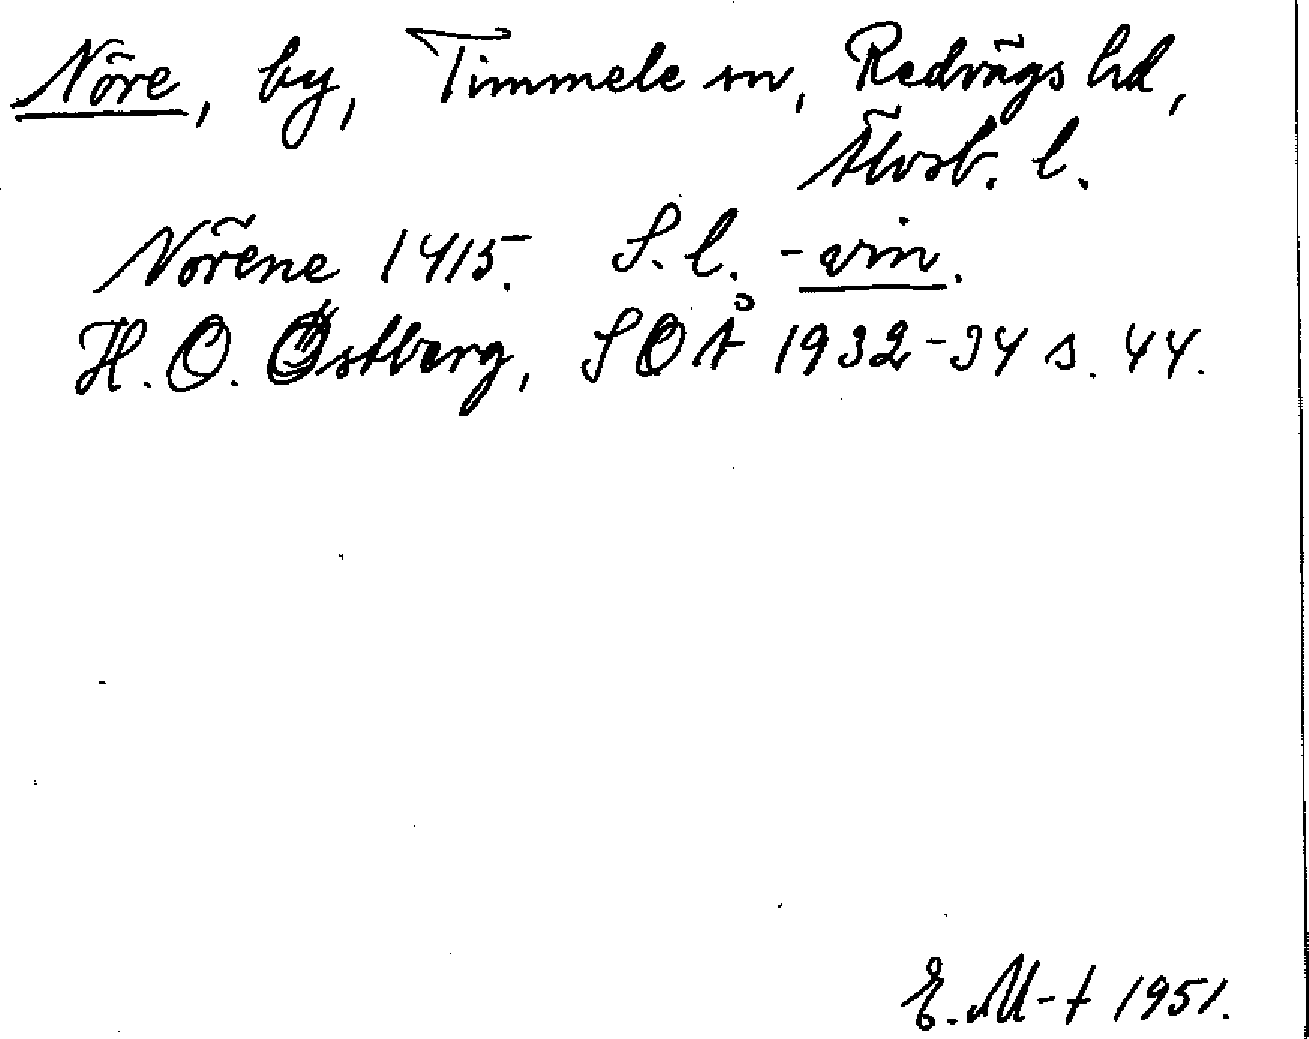 Nöre, by, Timmele sn, Redvägs hd,
Älvsb. l.
Nörene 1415. S. l. -vin.
H. O. Östberg, SOÅ 1932-34 s. 44.
E. M-t 1951.